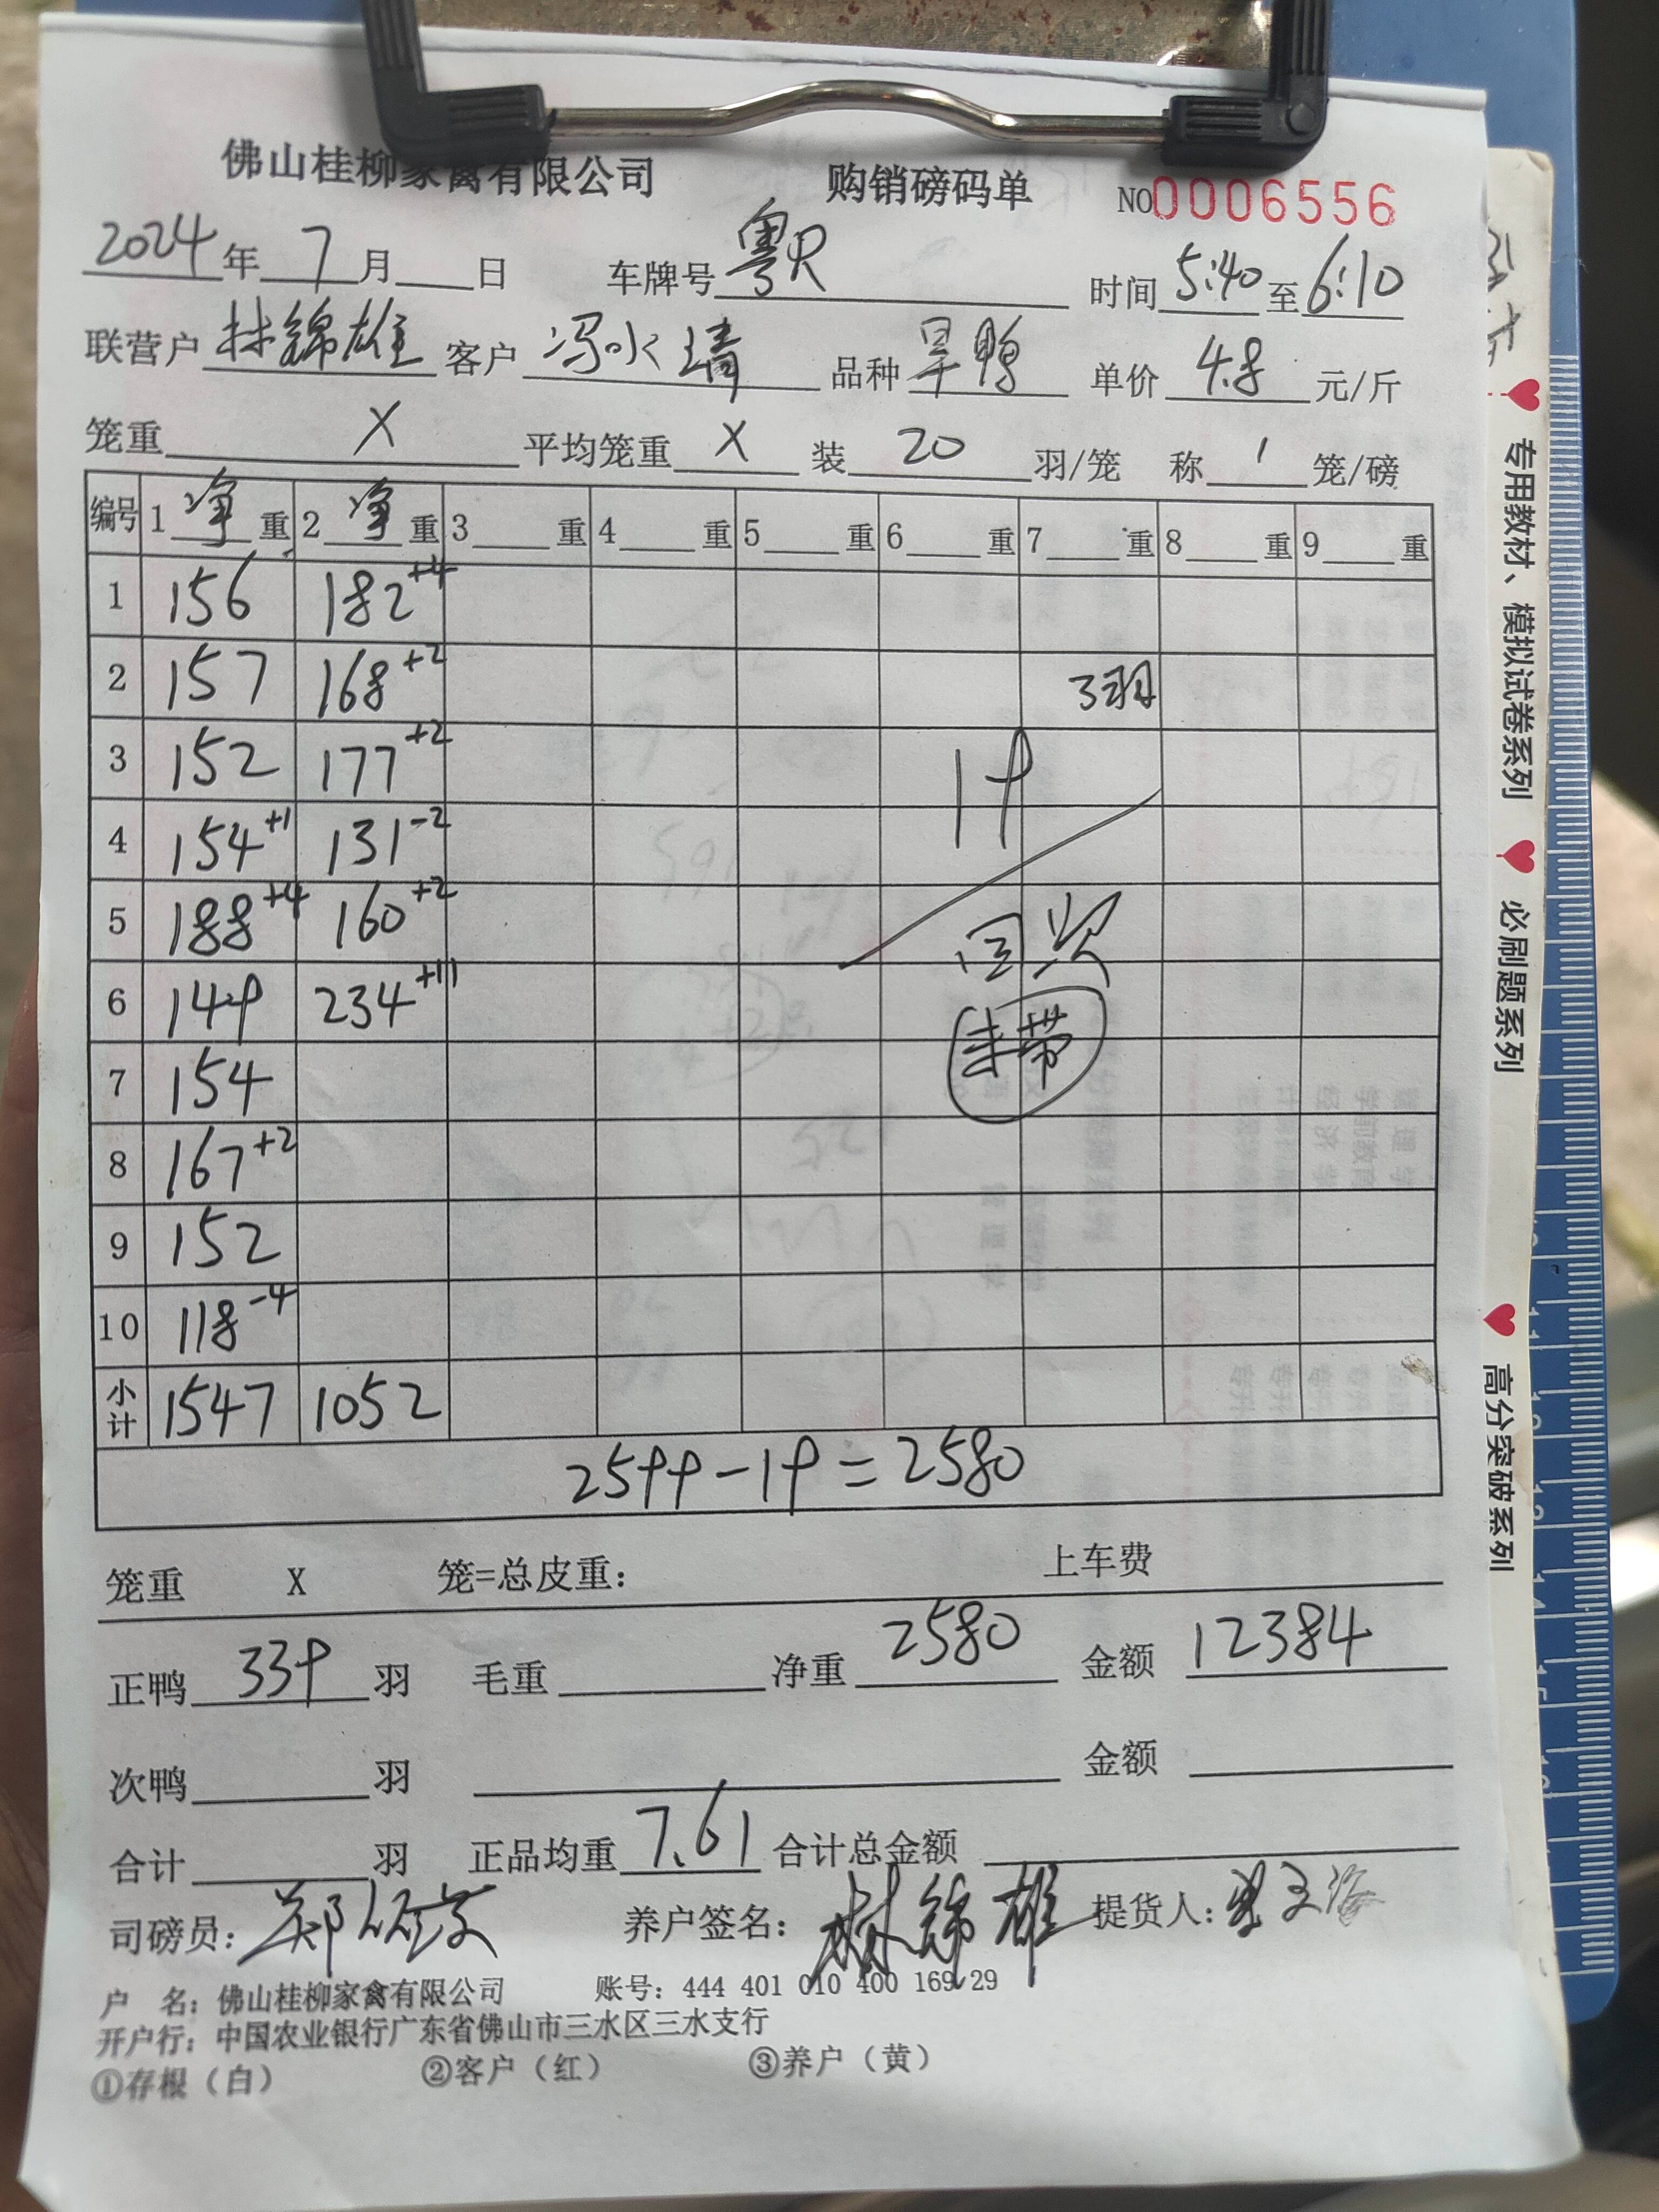 佛山桂柳家禽有限公司 购销磅码单 NO0006556
2024年7月 日 车牌号粤R 时间5:40至6:10
联营户林锦雄 客户冯水清 品种旱鸭 单价4.8元/斤
笼重 X 平均笼重 X 装20羽/笼 称1笼/磅
编号 1净重 2净重 3 重 4 重 5 重 6 重 7 重 8 重 9 重
1 156 182+4
2 157 168+2 3羽
3 152 177+2 19
4 154+1 131-2
5 188+4 160+2 回次
6 149 234+11 未带
7 154
8 167+2
9 152
10 118-4
小计 1547 1052
2599-19=2580
笼重 X 笼=总皮重： 上车费
正鸭339羽 毛重 净重2580 金额12384
次鸭 羽 金额
合计 羽 正品均重7.61 合计总金额
司磅员：郑 养户签名：林锦雄 提货人：
户 名：佛山桂柳家禽有限公司 账号：444 401 010 400 169 29
开户行：中国农业银行广东省佛山市三水区三水支行
①存根（白） ②客户（红） ③养户（黄）
专用教材、模拟试卷系列
必刷题系列
高分突破系列